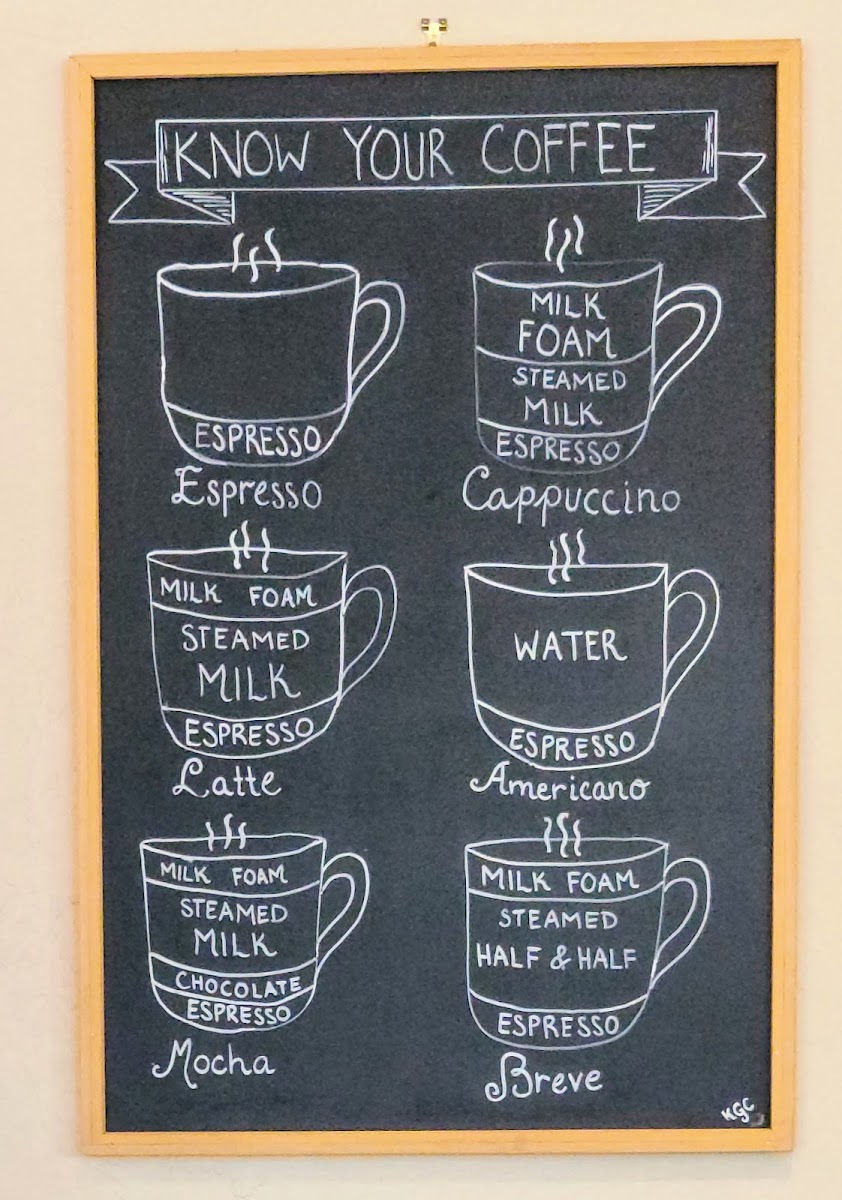 KNOW YOUR COFFEE
ESPRESSO
Espresso
MILK
FOAM
STEAMED
MILK
ESPRESSO
Cappuccino
MILK FOAM
STEAMED
MILK
ESPRESSO
Latte
WATER
ESPRESSO
Americano
MILK FOAM
STEAMED
MILK
CHOCOLATE
ESPRESSO
Mocha
MILK FOAM
STEAMED
HALF & HALF
ESPRESSO
Breve
KGC